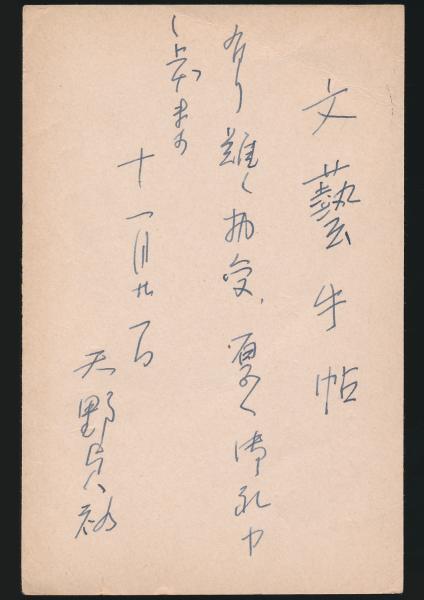 文藝手帖
有り難く拝受、厚く御礼申
し上げます
十一月廿一日
天野貞祐